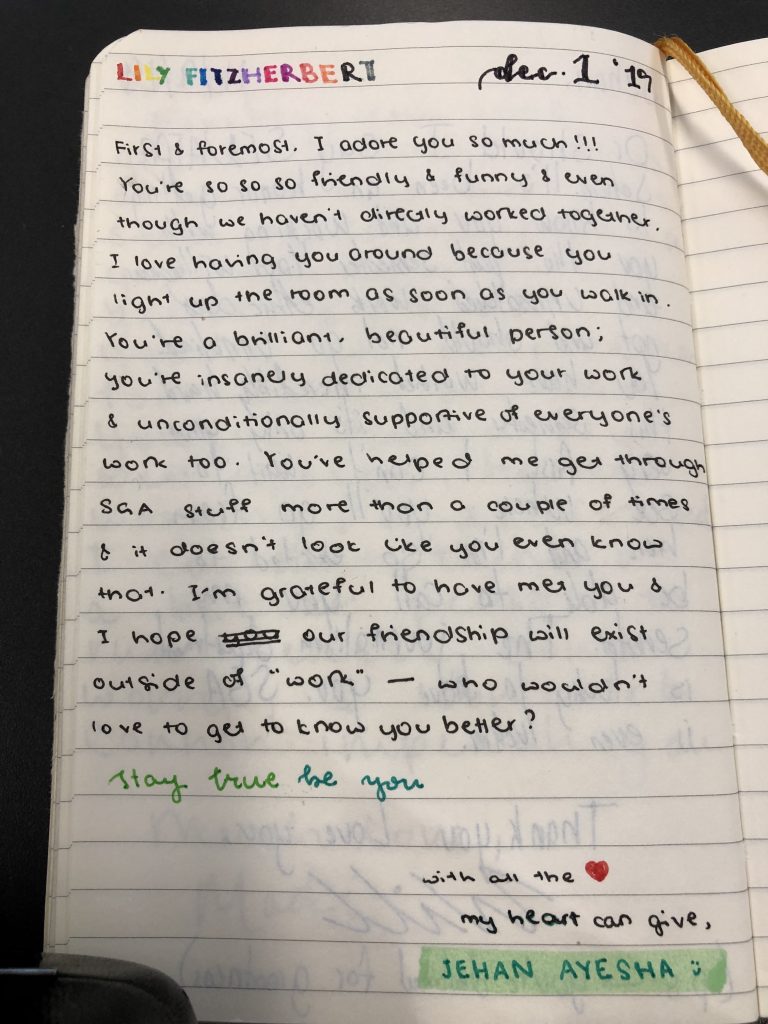 LILY FITZHERBERT dec. 1 '19
First & foremost, I adore you so much!!!
You're so so so friendly & funny & even
though we haven't directly worked together,
I love having you around because you
light up the room as soon as you walk in.
You're a brilliant, beautiful person;
you're insanely dedicated to your work
& unconditionally supportive of everyone's
work too. You've helped me get through
SGA stuff more than a couple of times
& it doesn't look like you even know
that. I'm grateful to have met you &
I hope our friendship will exist
outside of "work" — who wouldn't
love to get to know you better?
stay true be you
with all the ❤
my heart can give,
JEHAN AYESHA :)